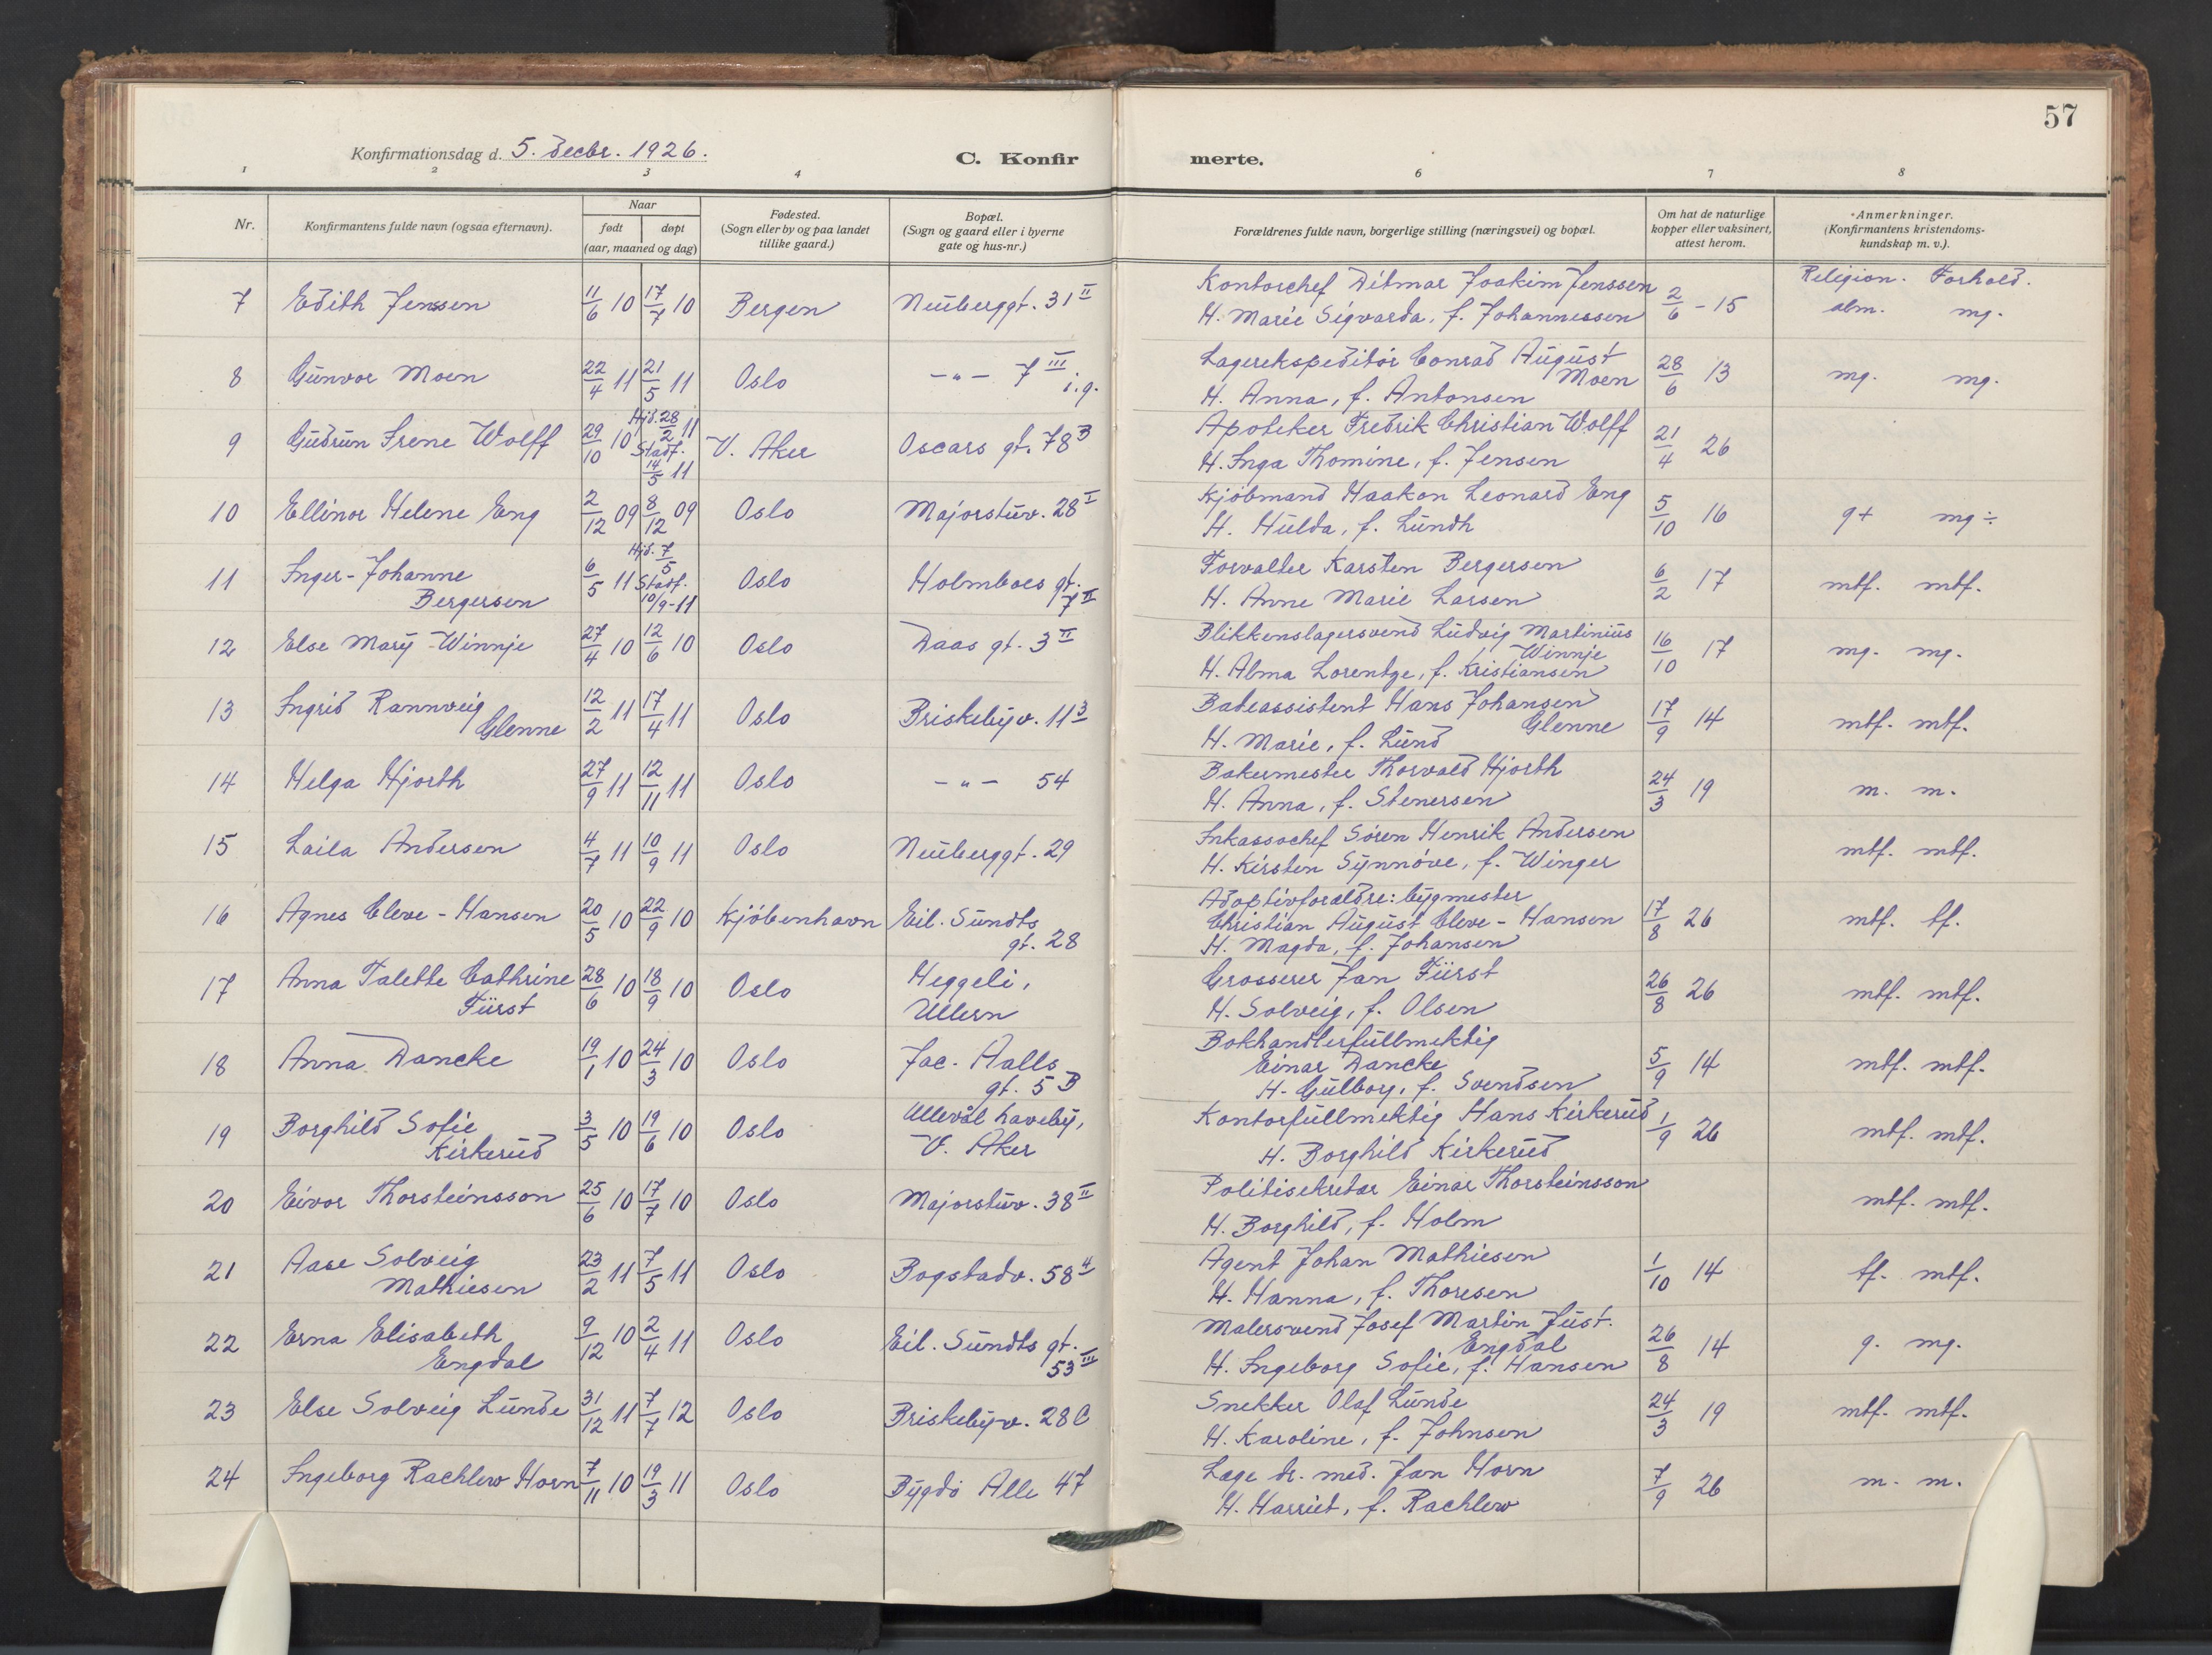 57
Konfirmationsdag d. 5. decbr. 1926.
C. Konfir merte.
1 2 3 4 6 7 8
Nr. Konfirmantens fulde navn (ogsaa efternavn). Naar født døpt (aar, maaned og dag) Fødested. (Sogn eller by og paa landet tillike gaard.) Bopæl. (Sogn og gaard eller i byerne gate og hus-nr.) Forældrenes fulde navn, borgerlige stilling (næringsvei) og bopæl. Om hat de naturlige kopper eller vaksinert, attest herom. Anmerkninger. (Konfirmantens kristendomskundskap m. v.).
Religion. Forhold.
7 Edith Jenssen 11/6 10 17/7 10 Bergen Neuberggt. 31 II Kontorchef Ditmar Joakim Jenssen
H. Marie Sigvarda, f. Johannessen 2/6 - 15 alm. mg.
8 Gunvor Moen 22/4 11 21/5 11 Oslo -"- 7 III i.g. Lagerekspeditör Conrad August Moen
H. Anna, f. Antonsen 28/6 13 mg. mg.
9 Gudrun Irene Wolff 29/10 10 Hjd. 28/2 11 Stadf. 14/5 11 V. Aker Oscars gt. 78 B Apoteker Fredrik Christian Wolff
H. Inga Thomine, f. Jensen 21/4 26
10 Ellinor Helene Eng 2/12 09 8/12 09 Oslo Majorstuv. 28 I Kjöbmand Haakon Leonard Eng
H. Hulda, f. Lundh 5/10 16 g+ mg÷
11 Inger-Johanne Bergersen 6/5 11 Hjd. 7/5 Stadf. 10/9-11 Oslo Holmboes gt. 7 II Forvalter Karsten Bergersen
H. Anne Marie Larsen 6/2 17 mtf. mtf.
12 Else Mary Winnje 27/4 10 12/6 10 Oslo Daas gt. 3 II Blikkenslagersvend Ludvig Martinius Winnje
H. Alma Lorentze, f. Kristiansen 16/10 17 mg. mg.
13 Ingrid Rannveig Glenne 12/2 11 17/4 11 Oslo Briskebyv. 11 3 Badeassistent Hans Johansen Glenne
H. Marie, f. Lund 17/9 14 mtf. mtf.
14 Helga Hjorth 27/9 11 12/11 11 Oslo -"- 54 Bakermester Thorvald Hjorth
H. Anna, f. Stenersen 24/3 19 m. m.
15 Laila Andersen 4/7 11 10/9 11 Oslo Neuberggt. 29 Inkassochef Sören Henrik Andersen
H. Kirsten Synnöve, f. Winger mtf. mtf.
16 Agnes Cleve-Hansen 20/5 10 22/9 10 Kjöbenhavn Eil. Sundts gt. 28 Adoptivforældre: Bygmester
Christian August Cleve-Hansen
H. Magda, f. Johansen 17/8 26 mtf. tf.
17 Anna Talette Cathrine Fürst 28/6 10 18/9 10 Oslo Heggeli, Ullern Grosserer Jan Fürst
H. Solveig, f. Olsen 26/8 26 mtf. mtf.
18 Anna Dancke 19/1 10 24/3 10 Oslo Jac. Aalls gt. 5 B Bokhandlerfullmektig
Einar Dancke
H. Gulborg, f. Svendsen 5/9 14 mtf. mtf.
19 Borghild Sofie Kirkerud 3/5 10 19/6 10 Oslo Ullevål haveby, V. Aker Kontorfullmektig Hans Kirkerud
H. Borghild Kirkerud 1/9 26 mtf. mtf.
20 Eivor Thorsteinsson 25/6 10 17/7 10 Oslo Majorstuv. 38 II Politisekretær Einar Thorsteinsson
H. Borghild, f. Holm mtf. mtf.
21 Aase Solveig Mathiesen 23/2 11 7/5 11 Oslo Bogstadv. 58 4 Agent Johan Mathiesen
H. Hanna, f. Thoresen 1/10 14 tf. mtf.
22 Erna Elisabeth Engdal 9/12 10 2/4 11 Oslo Eil. Sundts gt. 53 III Malersvend Josef Martin Just. Engdal
H. Ingeborg Sofie, f. Hansen 26/8 14 g. mg.
23 Else Solveig Lunde 31/12 11 7/7 12 Oslo Briskebyv. 28 C Snekker Olaf Lunde
H. Karoline, f. Johnsen 24/3 19 mtf. mtf.
24 Ingeborg Rachlew Horn 7/11 10 19/3 11 Oslo Bygdö Alle 47 Læge dr. med. Jan Horn
H. Harriet, f. Rachlew 7/9 26 m. m.